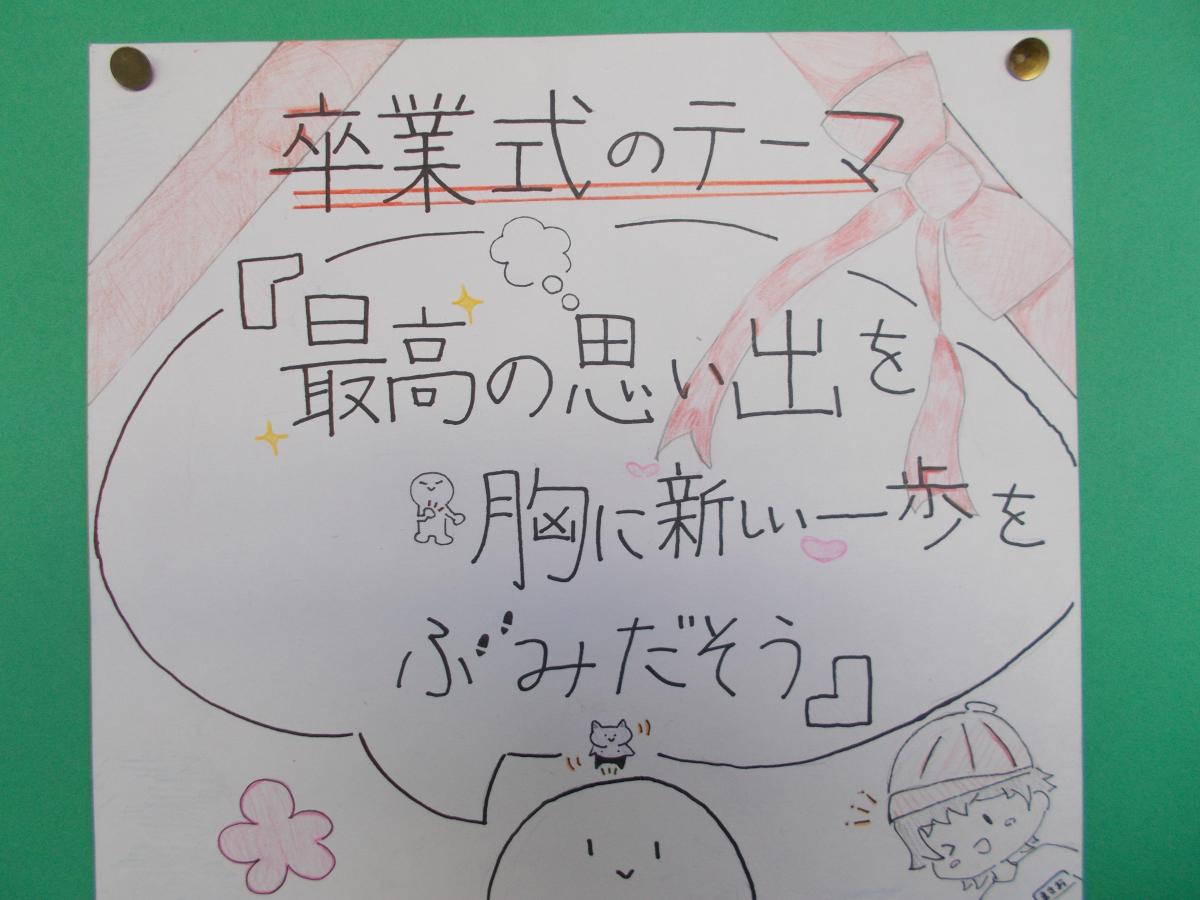 卒業式のテーマ
『最高の思い出を
胸に新しい一歩を
ふみだそう』